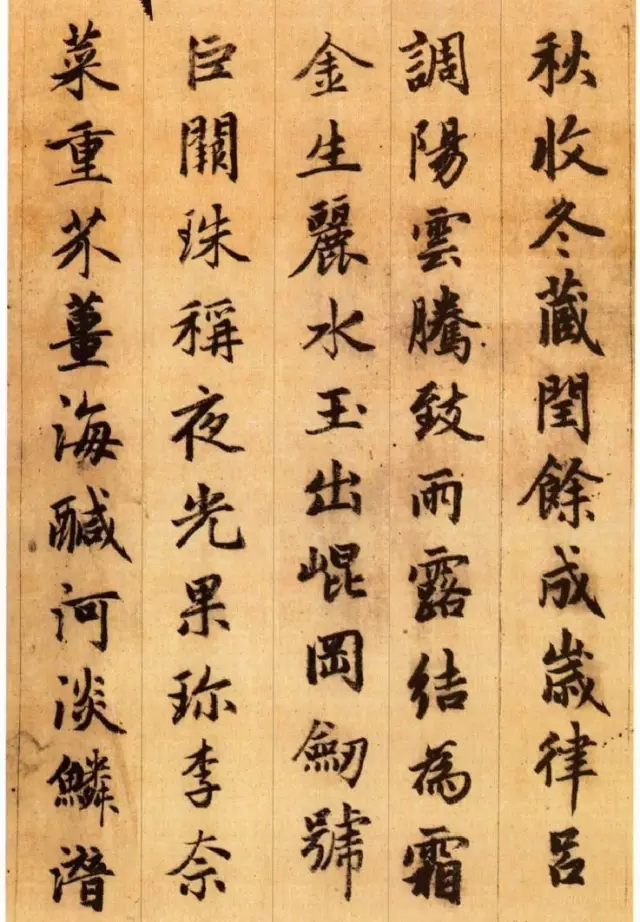 秋收冬蔵閏餘成歲律呂
調陽雲騰致雨露結為霜
金生麗水玉出崐岡劒號
巨闕珠稱夜光果珎李柰
菜重芥薑海醎河淡鱗潛